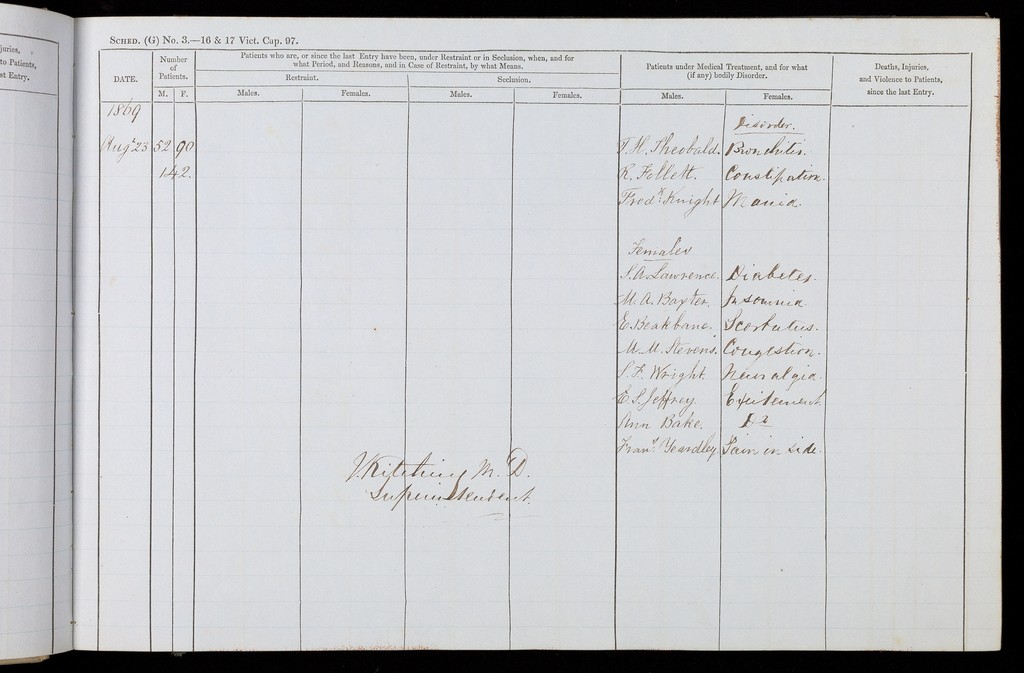 juries,
to Patients,
st Entry.
SCHED. (G) No. 3.—16 & 17 Vict. Cap. 97.
DATE.
Number
of
Patients.
M. F.
Patients who are, or since the last Entry have been, under Restraint or in Seclusion, when, and for
what Period, and Reasons, and in Case of Restraint, by what Means.
Restraint. Seclusion.
Males. Females. Males. Females.
Patients under Medical Treatment, and for what
(if any) bodily Disorder.
Males. Females.
Deaths, Injuries,
and Violence to Patients,
since the last Entry.
1869
Disorder.
Augt 23 52 90 T. H. Theobald. Bronchitis.
142. R. Follett. Constipation.
Fredk. Knight Mania.
Females
S. A. Lawrence. Diabetes.
M. A. Baxter. Insomnia
E. Beakbane. Scorbutus.
M. M. Stevens. Congestion.
S. F. Wright. Neuralgia.
E. S. Jeffrey. Exitement.
Ann Bake. Do
Frans. Yeardley. Pain in side.
J. Kitching M. D.
Superintendent.